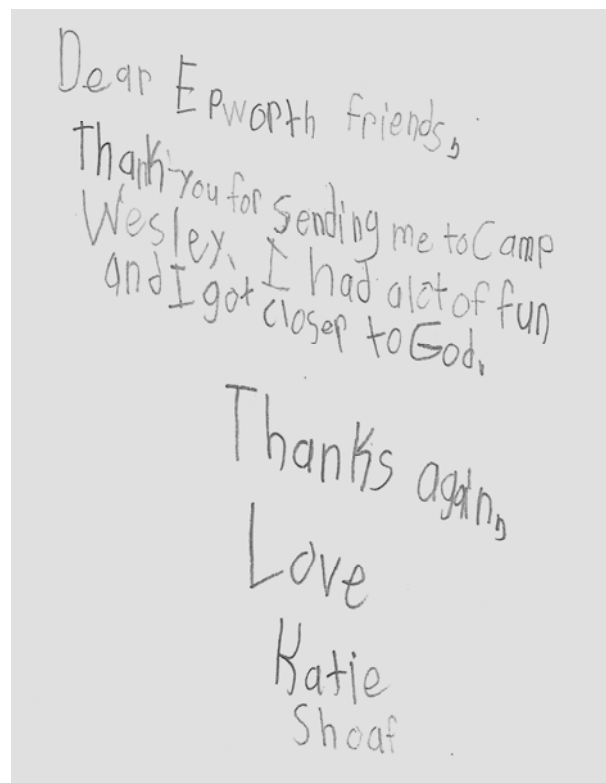 Dear Epworth friends,
Thank-you for sending me to Camp
Wesley. I had a lot of fun
and I got closer to God.
Thanks again,
Love
Katie
Shoaf